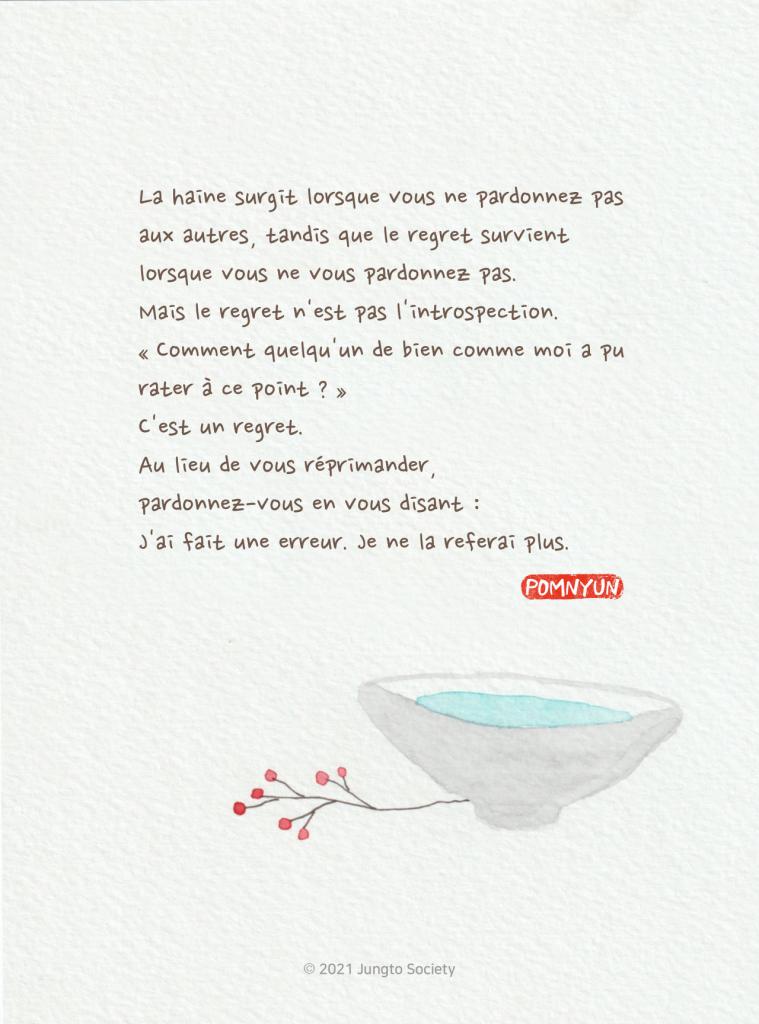 La haine surgit lorsque vous ne pardonnez pas
aux autres, tandis que le regret survient
lorsque vous ne vous pardonnez pas.
Mais le regret n'est pas l'introspection.
« Comment quelqu'un de bien comme moi a pu
rater à ce point ? »
C'est un regret.
Au lieu de vous réprimander,
pardonnez-vous en vous disant :
J'ai fait une erreur. Je ne la referai plus.
POMNYUN
© 2021 Jungto Society